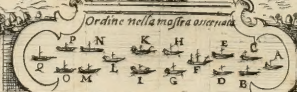 Ordine nella mostra osservato
P N K H E C A
Q O M L I G F D B